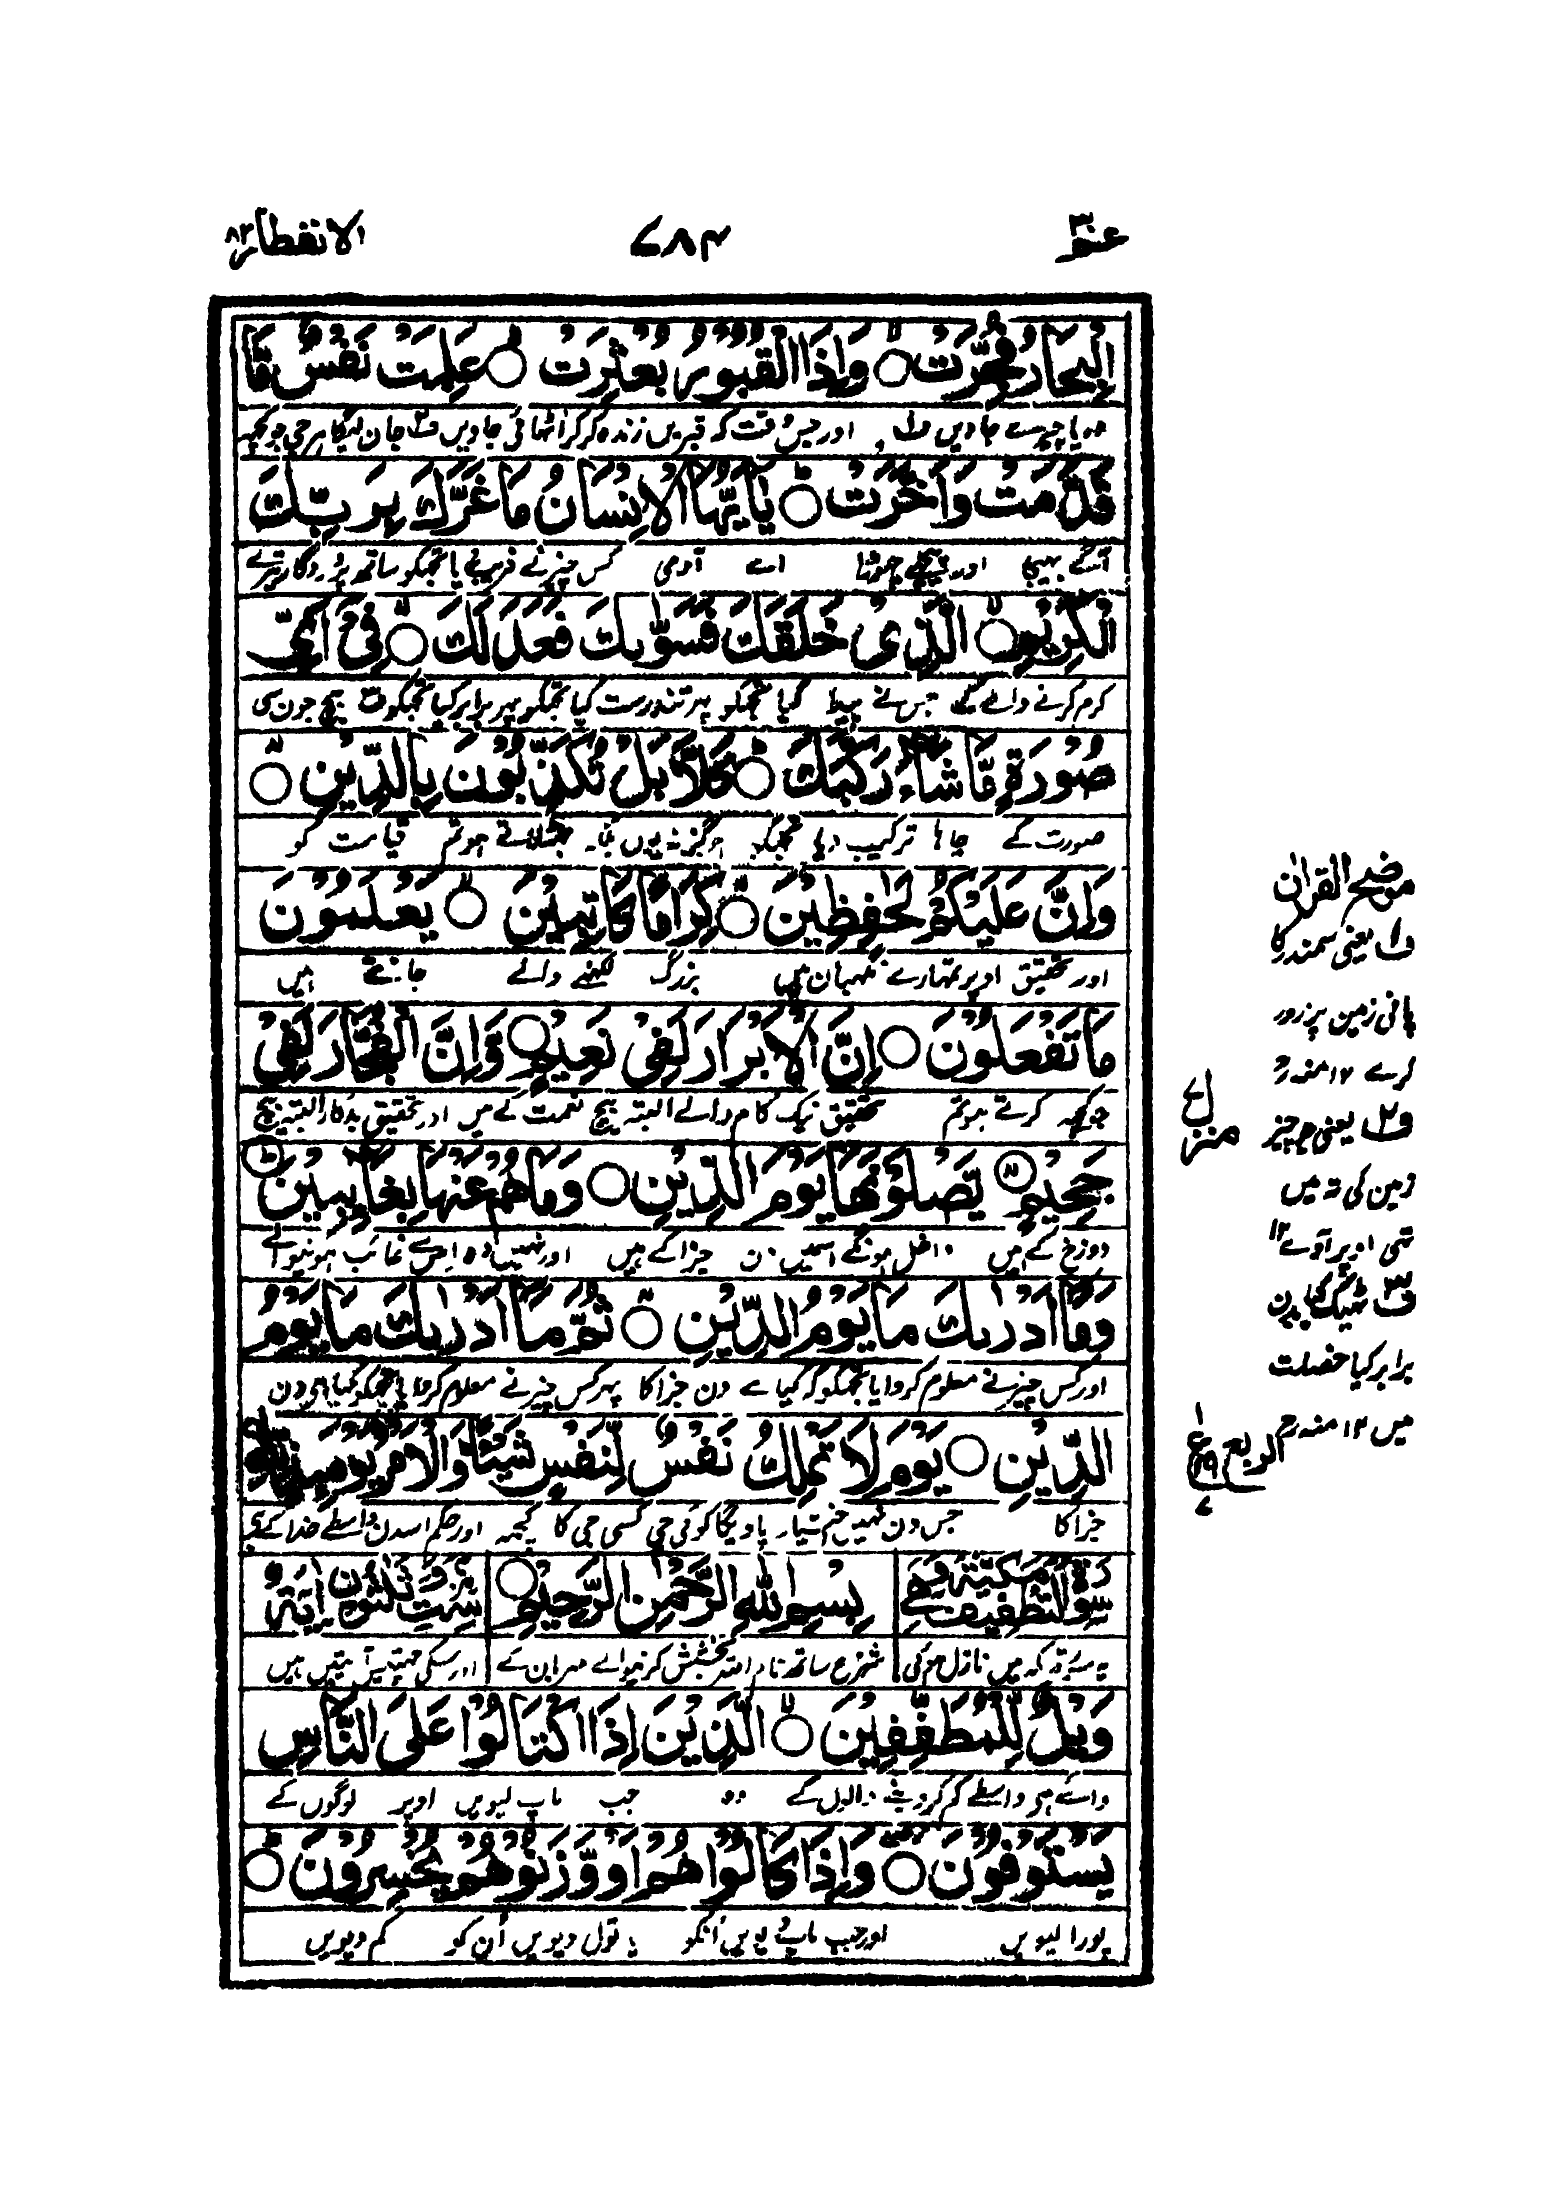 عم ٣٠
٧٨٤
الانفطار ٨٢
الْبِحَارُ فُجِّرَتْ ○ وَاِذَا الْقُبُوْرُ بُعْثِرَتْ ○ عَلِمَتْ نَفْسٌ مَّا
چیرے جاویں ف اور جس وقت کہ قبریں زندہ کر کر اٹھائی جاویں ف جان لیگا ہر جی جو کچھ
قَدَّمَتْ وَاَخَّرَتْ ○ يٰۤاَيُّهَا الْاِنْسَانُ مَا غَرَّكَ بِرَبِّكَ
آگے بھیجا اور پیچھے چھوڑا اے آدمی کس چیز نے فریب دیا تجھکو ساتھ پروردگار تیرے
الْكَرِيْمِ ○ الَّذِيْ خَلَقَكَ فَسَوّٰىكَ فَعَدَلَكَ ○ فِيْۤ اَيِّ
کرم کرنے والے کے جس نے پیدا کیا تجھکو پھر تندرست کیا تجھکو پھر برابر کیا تجھکو ف بیچ جون سی
صُوْرَةٍ مَّا شَآءَ رَكَّبَكَ ○ كَلَّا بَلْ تُكَذِّبُوْنَ بِالدِّيْنِ ○
صورت کے چاہا ترکیب دیا تجھکو ہرگز نہ یوں بلکہ جھٹلاتے ہو تم قیامت کو
وَاِنَّ عَلَيْكُمْ لَحٰفِظِيْنَ ○ كِرَامًا كَاتِبِيْنَ ○ يَعْلَمُوْنَ
اور تحقیق اوپر تمہارے نگہبان ہیں بزرگ لکھنے والے جانتے ہیں
مَا تَفْعَلُوْنَ ○ اِنَّ الْاَبْرَارَ لَفِيْ نَعِيْمٍ ○ وَّاِنَّ الْفُجَّارَ لَفِيْ
جو کچھ کرتے ہو تم تحقیق نیک کام والے البتہ بیچ نعمت کے ہیں اور تحقیق بدکار البتہ بیچ
جَحِيْمٍ ○ يَّصْلَوْنَهَا يَوْمَ الدِّيْنِ ○ وَمَا هُمْ عَنْهَا بِغَآئِبِيْنَ ○
دوزخ کے ہیں داخل ہونگے اسمیں دن جزا کے ہیں اور نہیں وہ اس سے غائب ہونیوالے
وَمَاۤ اَدْرٰىكَ مَا يَوْمُ الدِّيْنِ ○ ثُمَّ مَاۤ اَدْرٰىكَ مَا يَوْمُ
اور کس چیز نے معلوم کروایا تجھکو کہ کیا ہے دن جزا کا پھر کس چیز نے معلوم کروایا تجھکو کیا ہے دن
الدِّيْنِ ○ يَوْمَ لَا تَمْلِكُ نَفْسٌ لِّنَفْسٍ شَيْـًٔا وَالْاَمْرُ يَوْمَىِٕذٍ لِّلّٰهِ
جزا کا جس دن نہیں اختیار پاویگا کوئی جی کسی جی کا کچھ اور حکم اسدن واسطے خدا کے ہے
سُوْرَةُ التَّطْفِيْفِ مَكِّيَّةٌ وَّهِيَ
بِسْمِ اللّٰهِ الرَّحْمٰنِ الرَّحِيْمِ ○
سِتٌّ وَّثَلٰثُوْنَ اٰيَةً
یہ سورۃ مکہ میں نازل ہوئی شروع ساتھ نام اللہ بخشش کرنیوالے مہربان کے اور اسکی چھتیس آیتیں ہیں
وَيْلٌ لِّلْمُطَفِّفِيْنَ ○ الَّذِيْنَ اِذَا اكْتَالُوْا عَلَى النَّاسِ
وائے ہے واسطے کم کر دینے والوں کے وہ جب ماپ لیویں اوپر لوگوں کے
يَسْتَوْفُوْنَ ○ وَاِذَا كَالُوْهُمْ اَوْ وَّزَنُوْهُمْ يُخْسِرُوْنَ ○
پورا لیویں اور جب ماپ دیویں انکو یا تول دیویں ان کو کم دیویں
موضح القرآن
ف۱ یعنی سمندر کا
پانی زمین پر زور
کرے ۱۲ منہ رح
ف۲ یعنی جو چیز
زمین کی تہ میں
تھی اوپر آوے ۱۲
ف۳ ٹھیک کیا بدن
برابر کیا خصلت
میں ۱۲ منہ رح
منزل
الربع